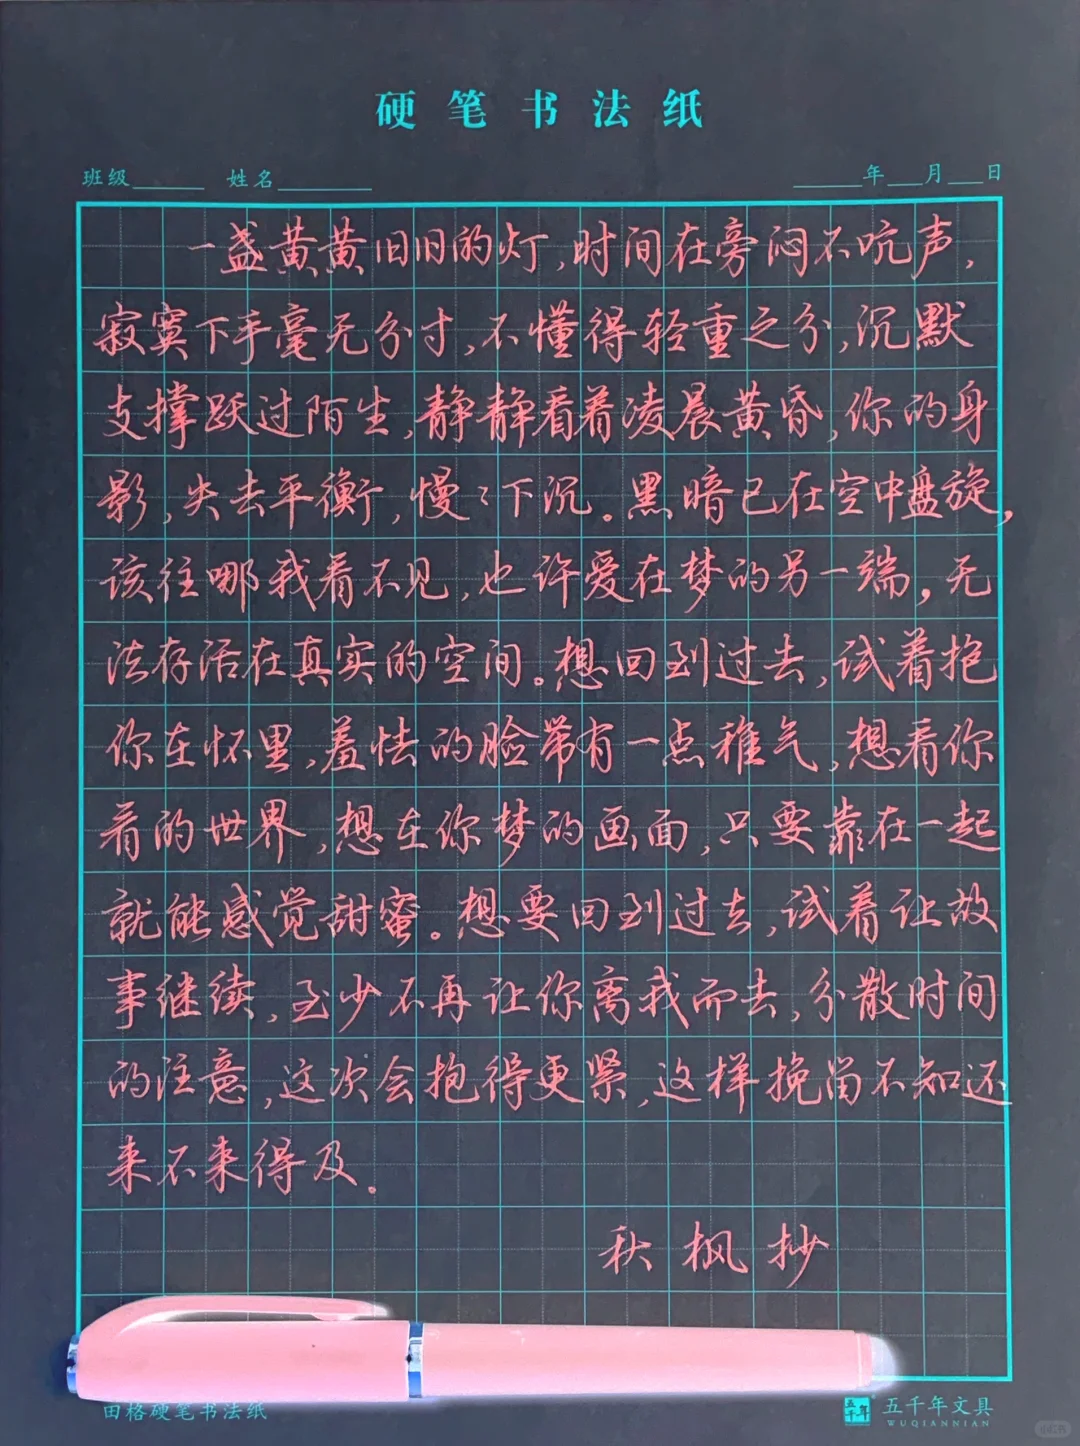 硬笔书法纸
班级 姓名 年 月 日
一盏黄黄旧旧的灯,时间在旁闷不吭声,
寂寞下手毫无分寸,不懂得轻重之分,沉默
支撑跃过陌生,静静看着凌晨黄昏,你的身
影,失去平衡,慢々下沉。黑暗已在空中盘旋,
该往哪我看不见,也许爱在梦的另一端,无
法存活在真实的空间。想回到过去,试着抱
你在怀里,羞怯的脸带有一点稚气,想看你
看的世界,想在你梦的画面,只要靠在一起
就能感觉甜蜜。想要回到过去,试着让故
事继续,至少不再让你离我而去,分散时间
的注意,这次会抱得更紧,这样挽留不知还
来不来得及。
秋枫抄
田格硬笔书法纸
五千年 五千年文具
WUQIANNIAN